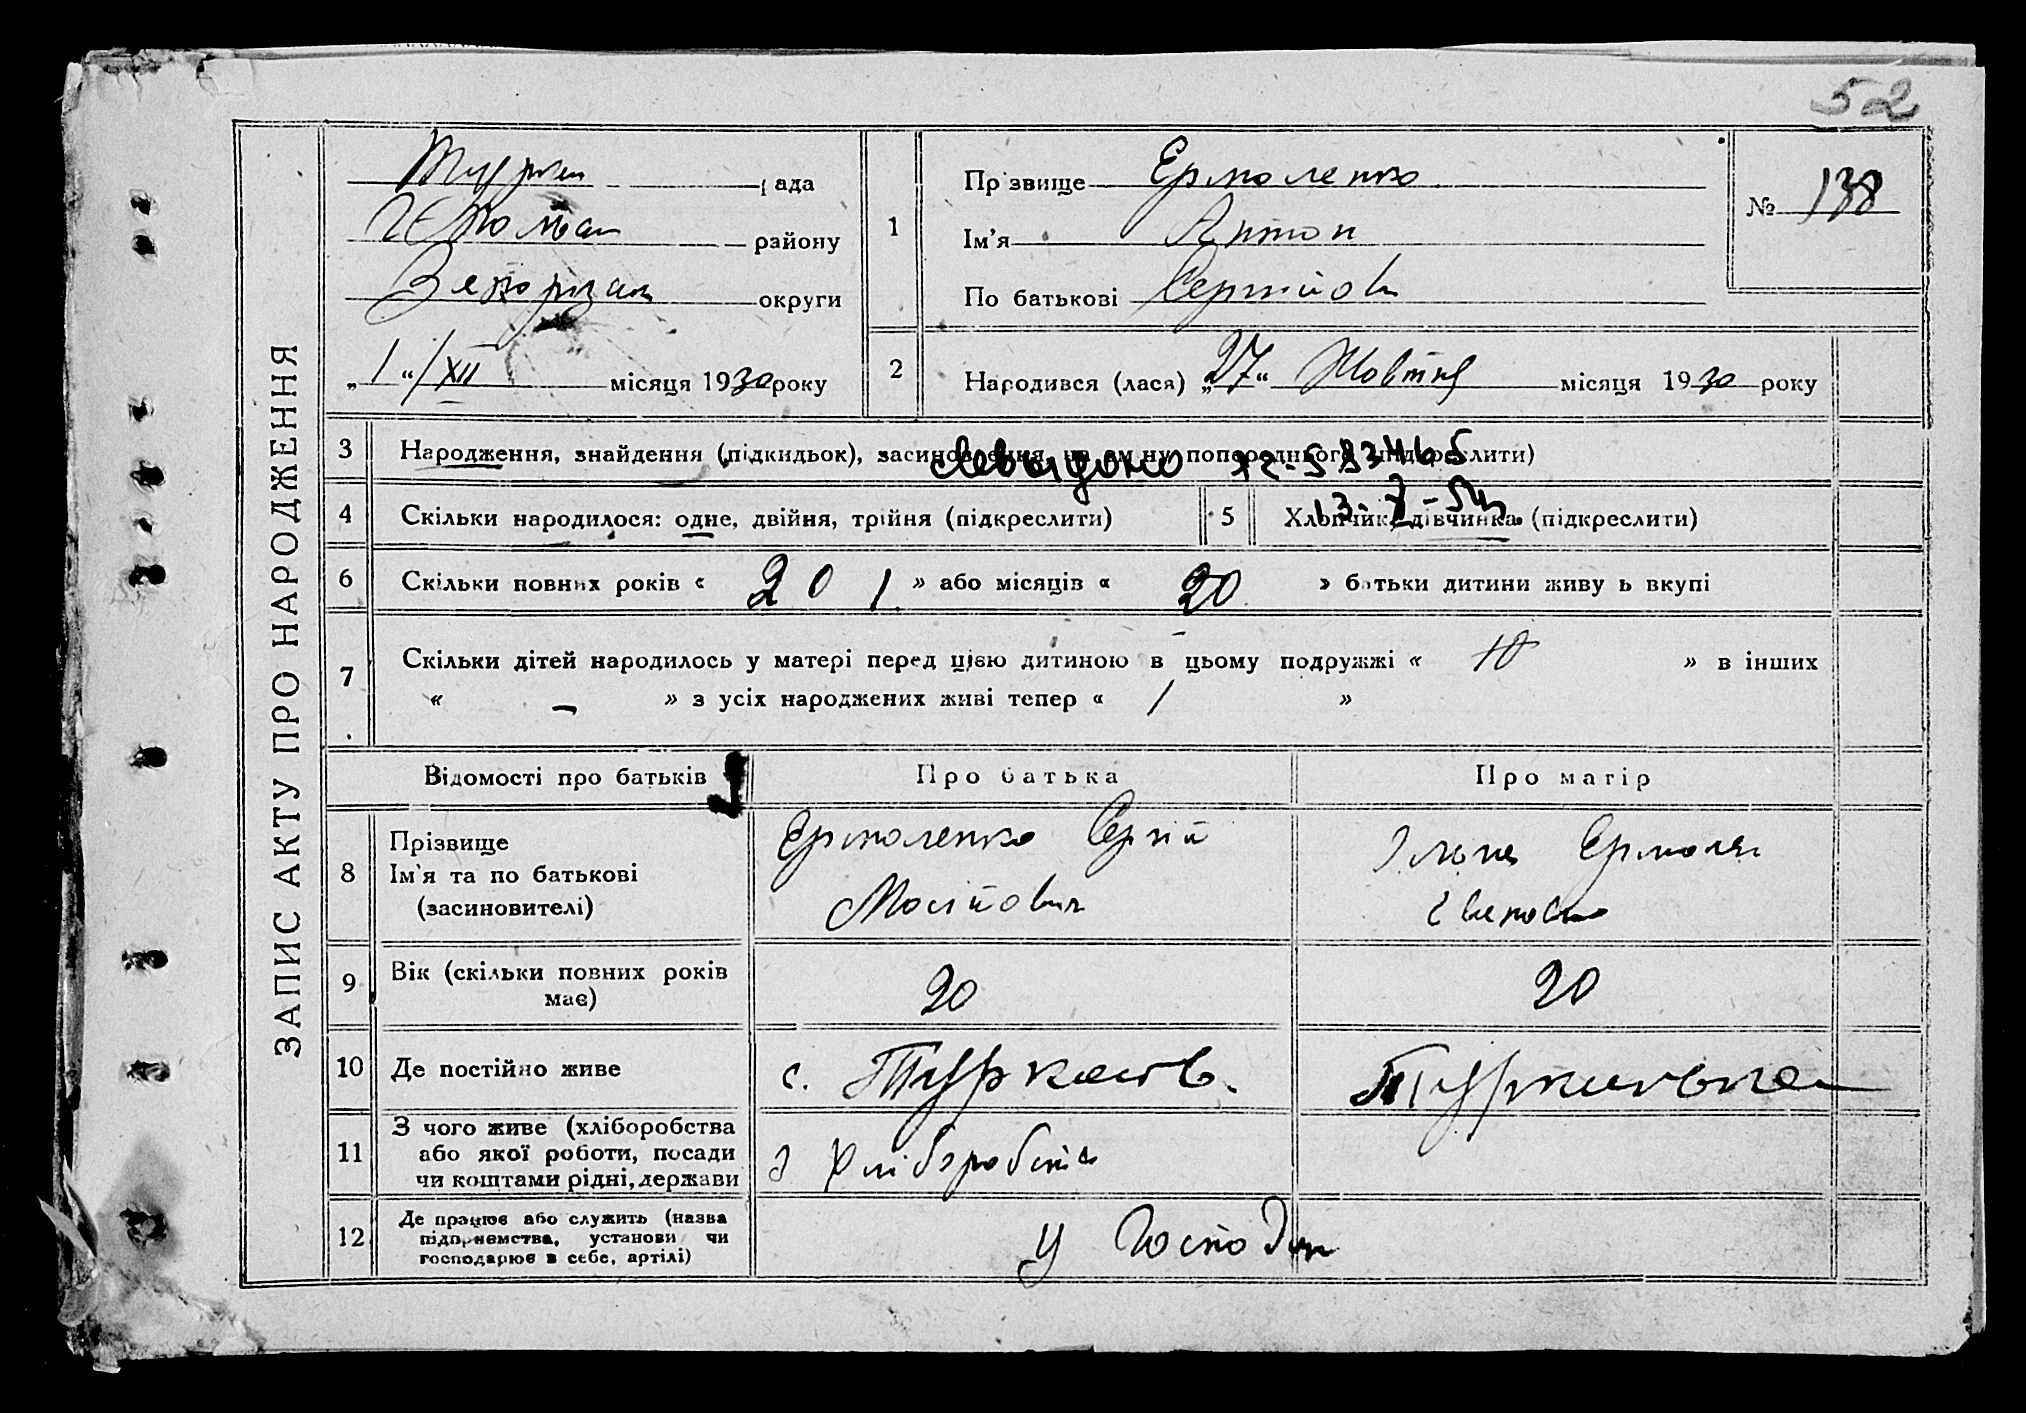 52
ЗАПИС АКТУ ПРО НАРОДЖЕННЯ
рада
району
округи
„1“/XII місяця 1930 року
1
Прізвище Ермоленко
Ім'я Антон
По батькові Сергійов
№ 138
2
Народився (лася) „27“ Жовтня місяця 1930 року
3
Народження, знайдення (підкидьок), засиновлення, на зміну попереднього (підкреслити)
4
Скільки народилося: одне, двійня, трійня (підкреслити)
13-7-54
5
Хлопчик, дівчинка (підкреслити)
6
Скільки повних років « 20 1 » або місяців « 20 » батьки дитини живуть вкупі
7
Скільки дітей народилось у матері перед цією дитиною в цьому подружжі « » в інших
« – » з усіх народжених живі тепер « 1 »
Відомості про батьків
Про батька
Про матір
8
Прізвище
Ім'я та по батькові
(засиновителі)
Ермоленко Сергій
9
Вік (скільки повних років
має)
20
20
10
Де постійно живе
с.
11
З чого живе (хліборобства
або якої роботи, посади
чи коштами рідні, держави
з
12
Де працює або служить (назва
підприємства, установи чи
господарює в себе, артілі)
у